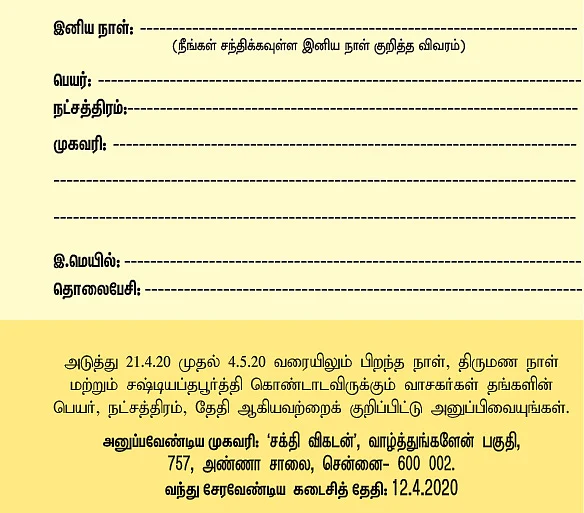 இனிய நாள்: ---------------------------------------------------------------
(நீங்கள் சந்திக்கவுள்ள இனிய நாள் குறித்த விவரம்)
பெயர்: ---------------------------------------------------------------
நட்சத்திரம்:---------------------------------------------------------------
முகவரி: ---------------------------------------------------------------
---------------------------------------------------------------
---------------------------------------------------------------
இ.மெயில்: ---------------------------------------------------------------
தொலைபேசி: ---------------------------------------------------------------
அடுத்து 21.4.20 முதல் 4.5.20 வரையிலும் பிறந்த நாள், திருமண நாள்
மற்றும் சஷ்டியப்தபூர்த்தி கொண்டாடவிருக்கும் வாசகர்கள் தங்களின்
பெயர், நட்சத்திரம், தேதி ஆகியவற்றைக் குறிப்பிட்டு அனுப்பிவையுங்கள்.
அனுப்பவேண்டிய முகவரி: ‘சக்தி விகடன்’, வாழ்த்துங்களேன் பகுதி,
757, அண்ணா சாலை, சென்னை- 600 002.
வந்து சேரவேண்டிய கடைசித் தேதி: 12.4.2020